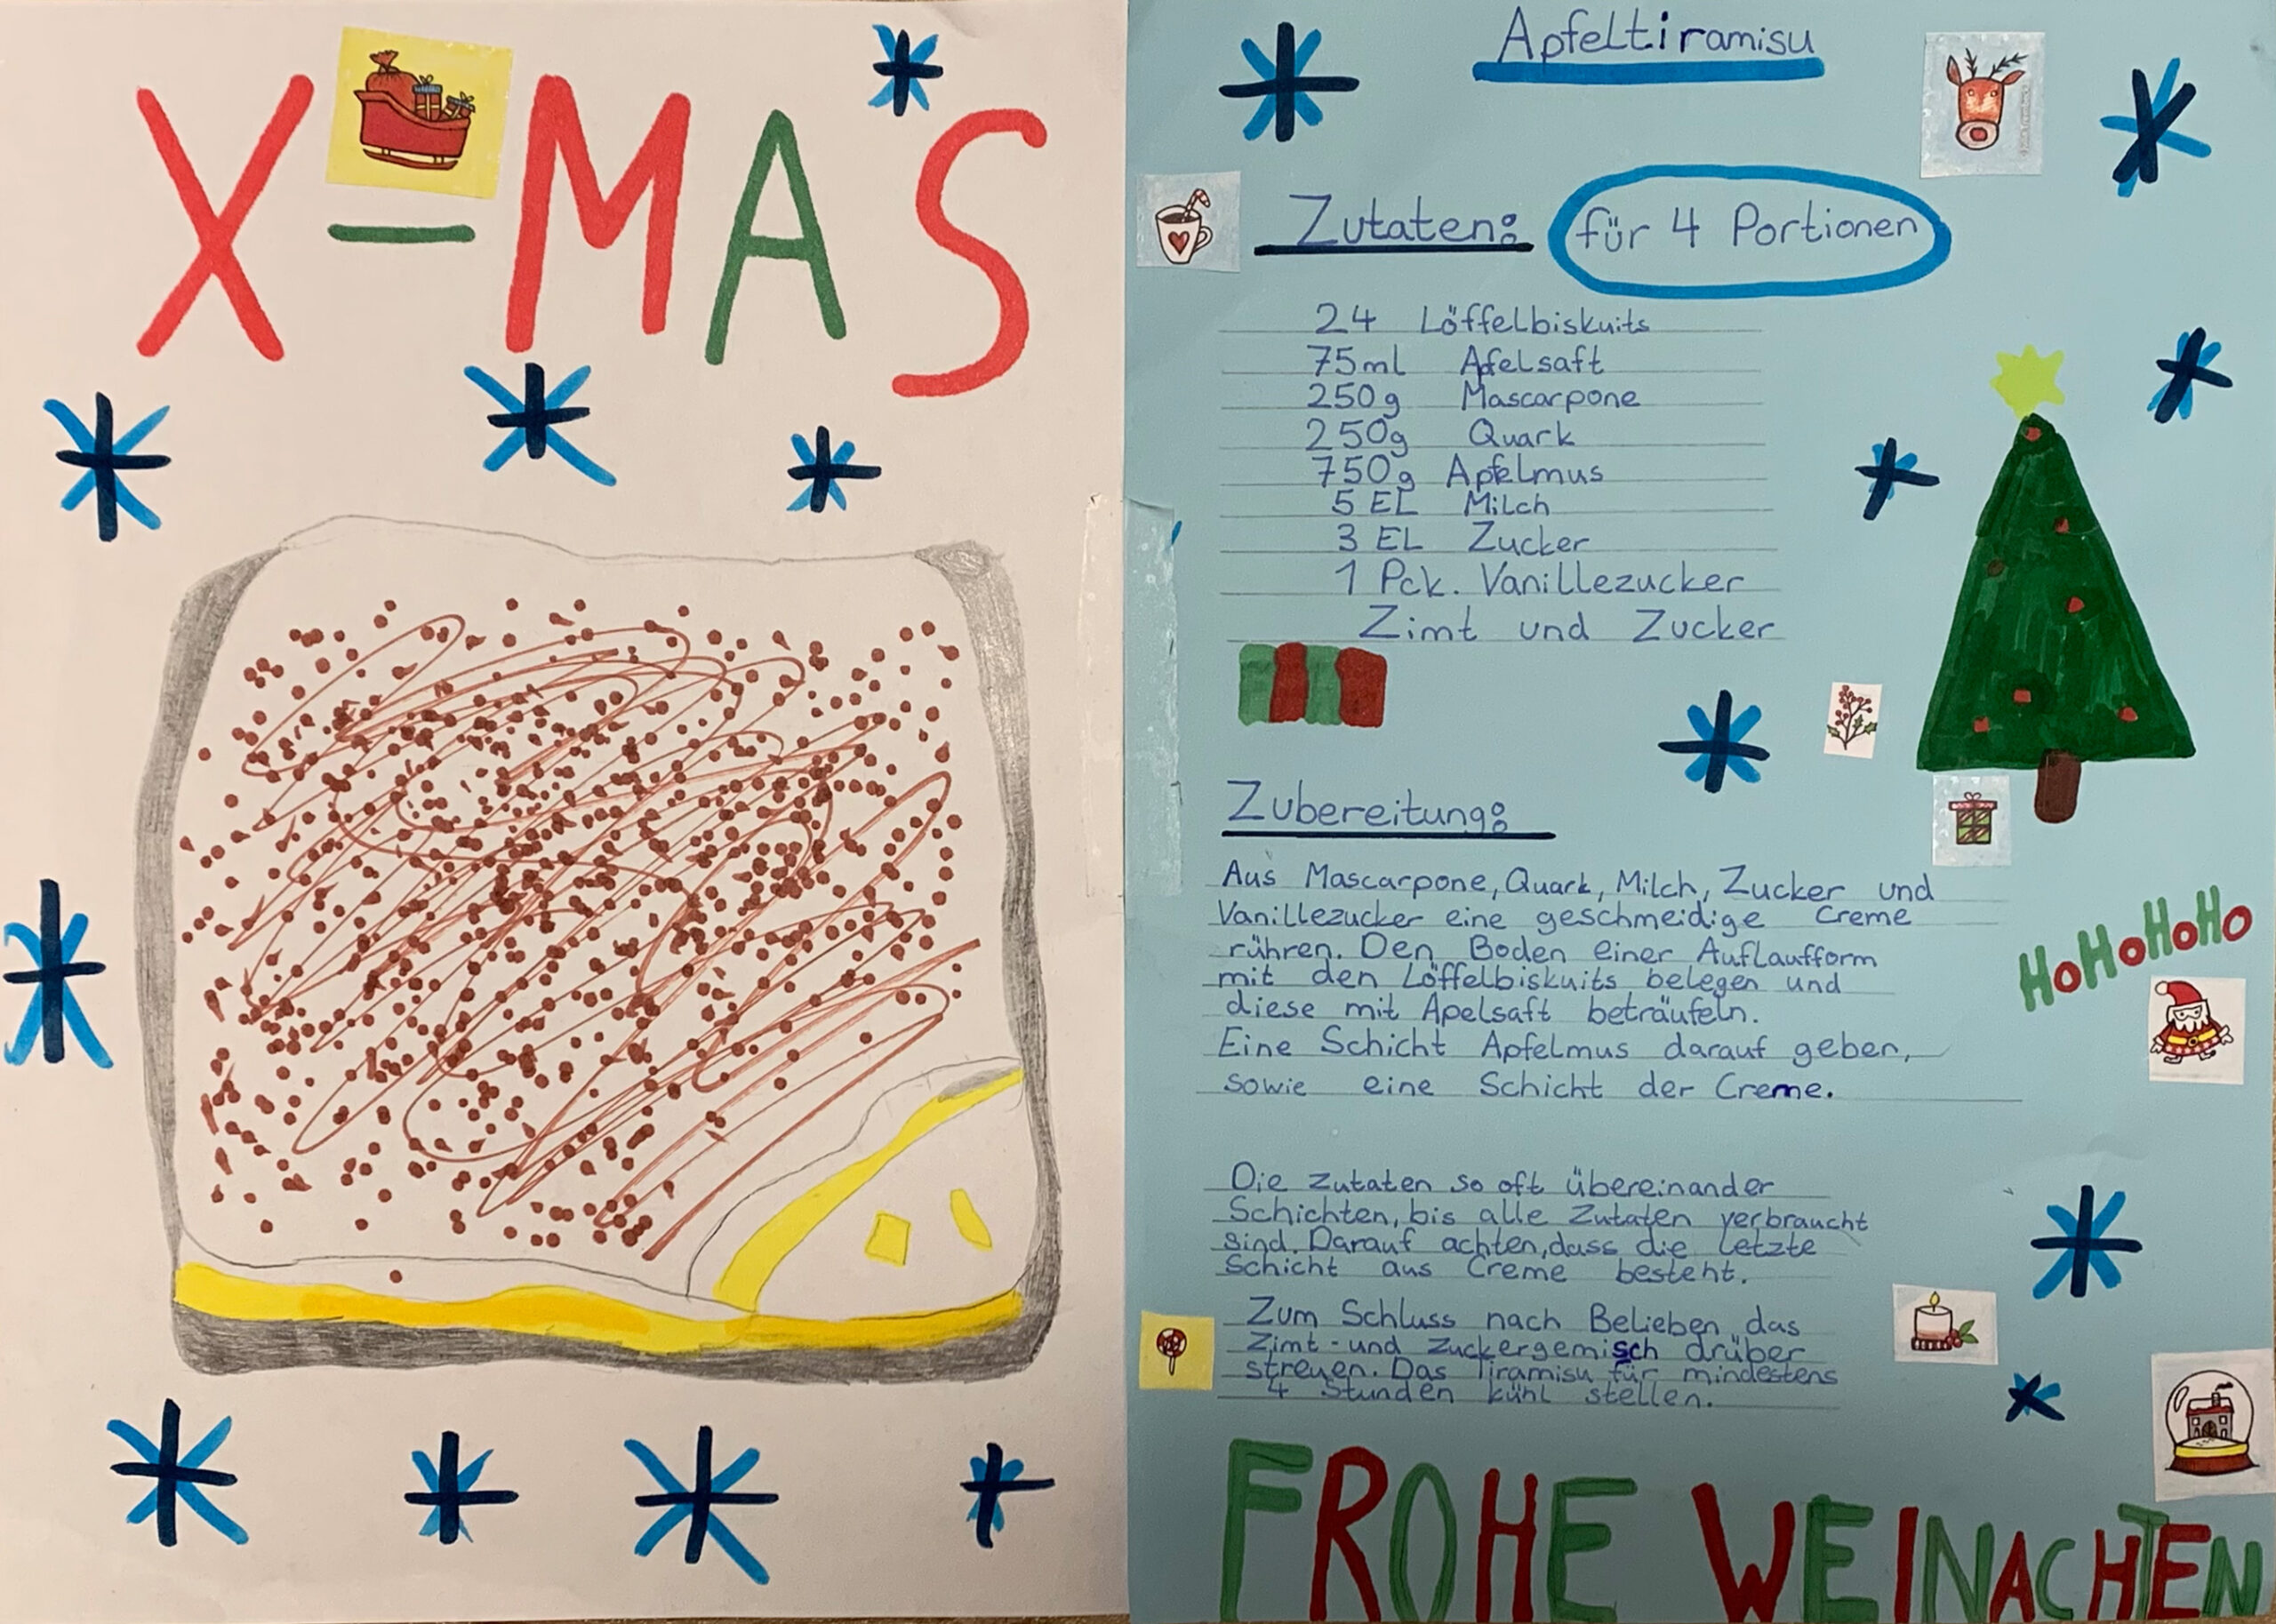 X-MAS
Apfeltiramisu
Zutaten: für 4 Portionen
24 Löffelbiskuits
75ml Apfelsaft
250g Mascarpone
250g Quark
750g Apfelmus
5 EL Milch
3 EL Zucker
1 Pck. Vanillezucker
Zimt und Zucker
Zubereitung:
Aus Mascarpone, Quark, Milch, Zucker und
Vanillezucker eine geschmeidige Creme
rühren. Den Boden einer Auflaufform
mit den Löffelbiskuits belegen und
diese mit Apelsaft beträufeln.
Eine Schicht Apfelmus darauf geben,
sowie eine Schicht der Creme.
HoHoHoHo
Die Zutaten so oft übereinander
Schichten, bis alle Zutaten verbraucht
sind. Darauf achten, dass die letzte
Schicht aus Creme besteht.
Zum Schluss nach Belieben das
Zimt - und Zuckergemisch drüber
streuen. Das Tiramisu für mindestens
4 Stunden kühl stellen.
FROHE WEINACHTEN